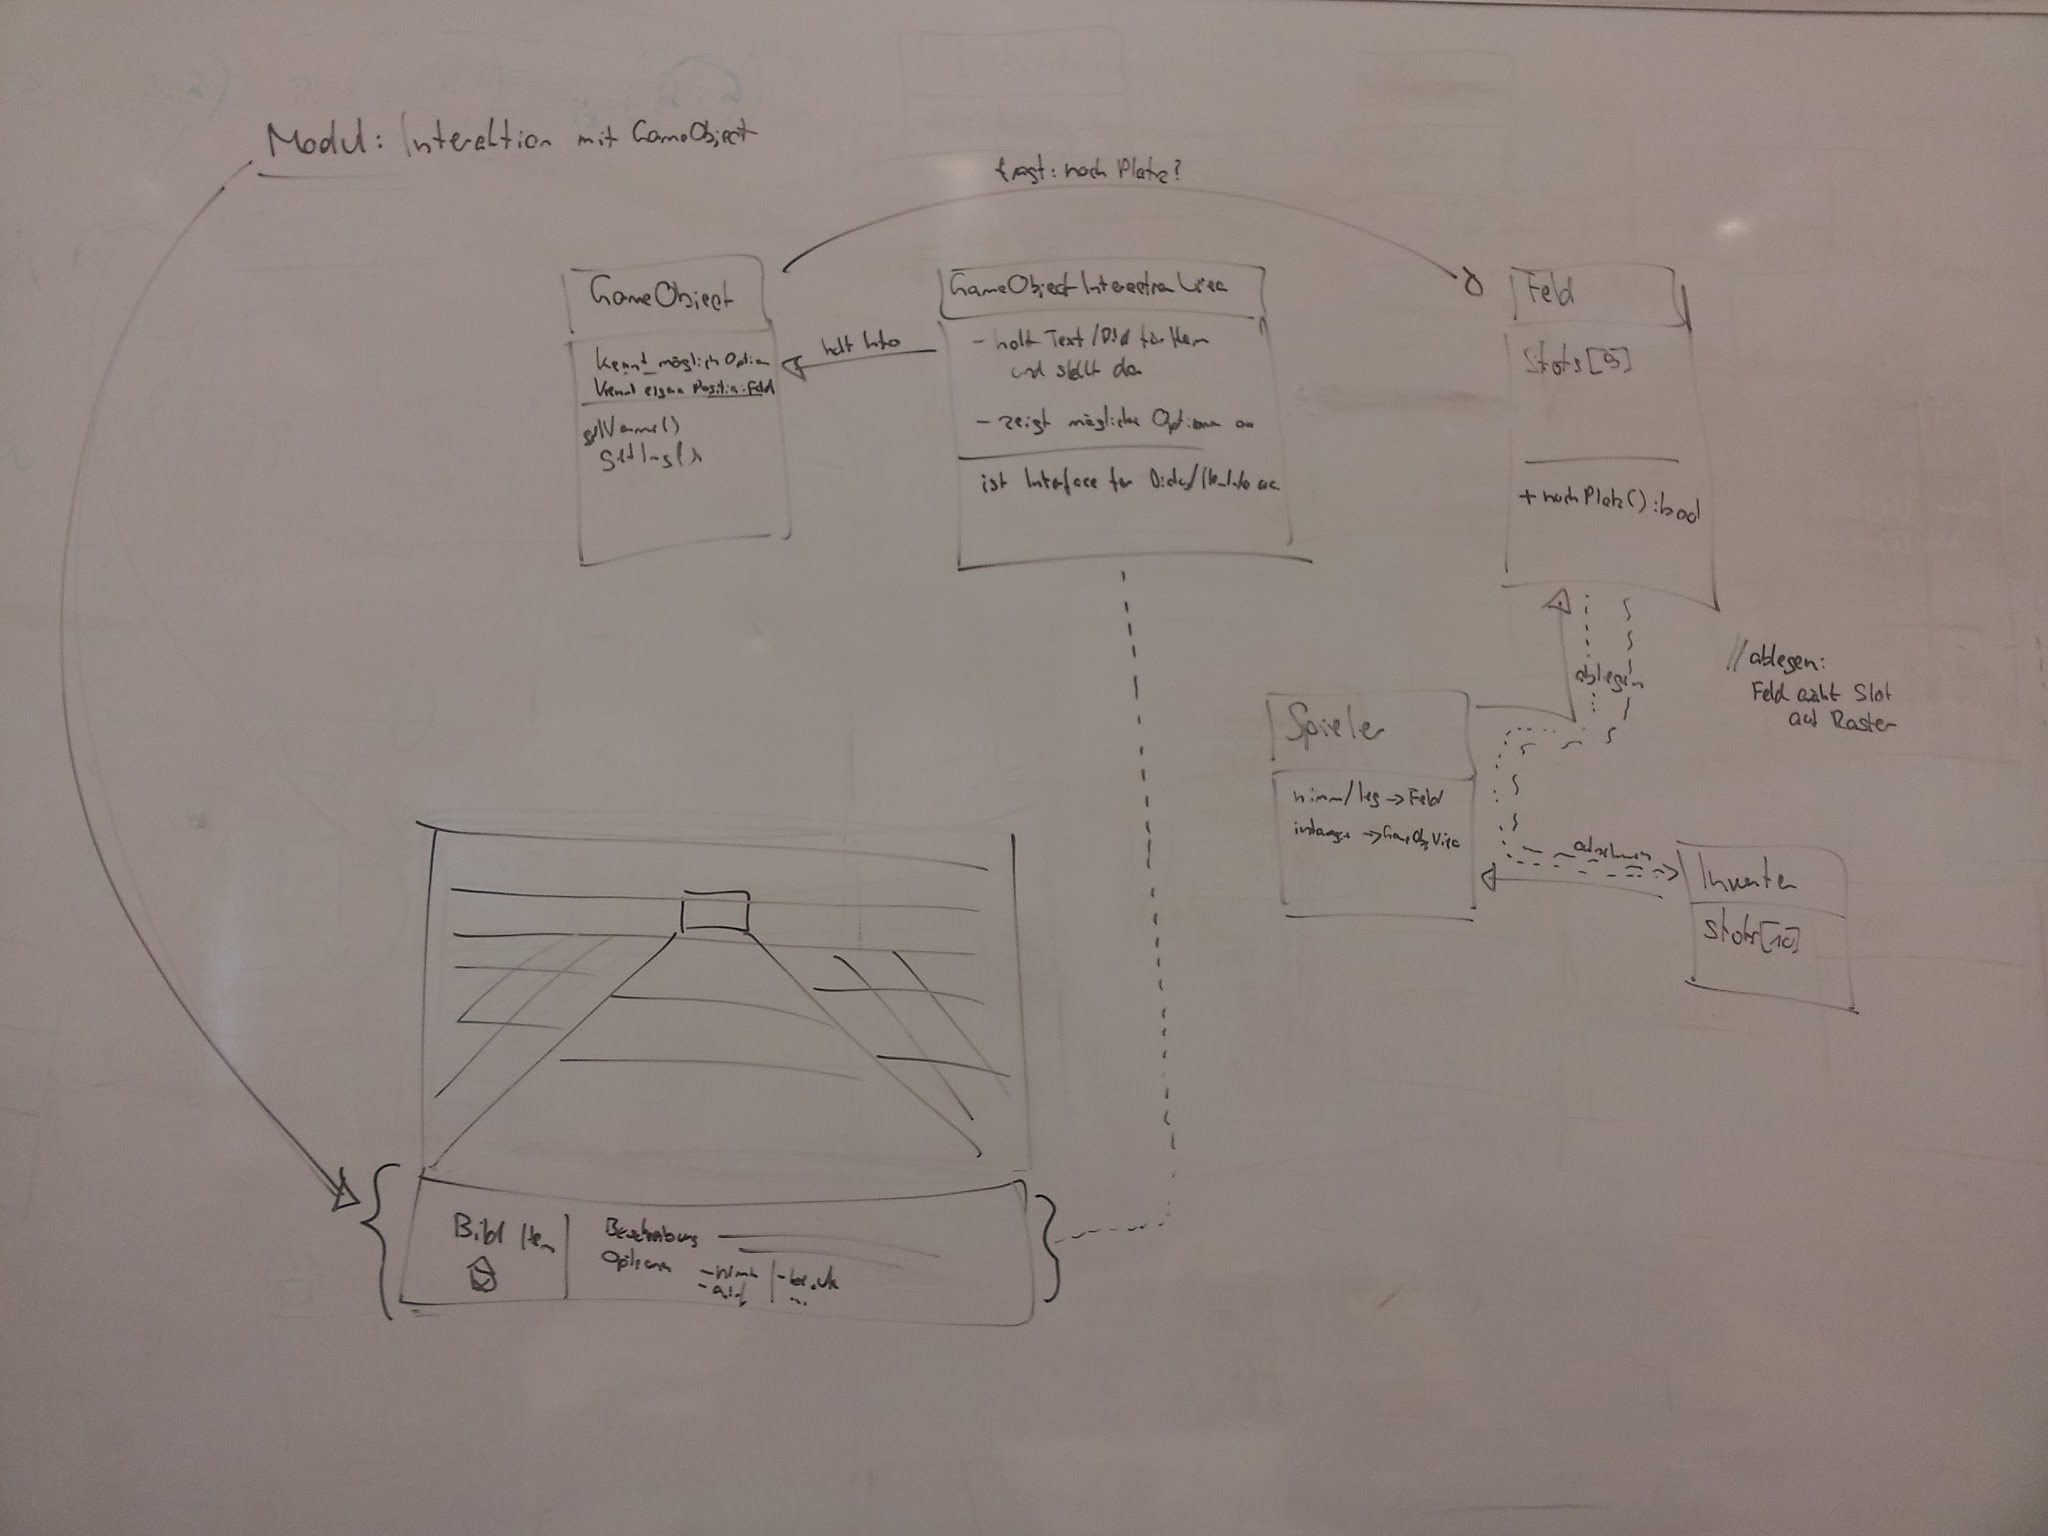 Modul: Interaktion mit GameObject
fragt: noch Platz?
GameObject
kennt möglich Option
kennt eigene Position: Feld
getName()
getImg()
holt Info
GameObject Interaction View
- holt Text/Bild für Item
und stellt dar
- zeigt mögliche Optionen an
ist Interface for
Feld
Slots[9]
+ nochPlatz():bool
ablegen
// ablegen:
Feld wählt Slot
auf Raster
Spieler
nimm/leg → Feld
→ GameObjView
aufnehmen
Inventar
Slots[10]
Bild Item
Beschreibung
Optionen
- nimm